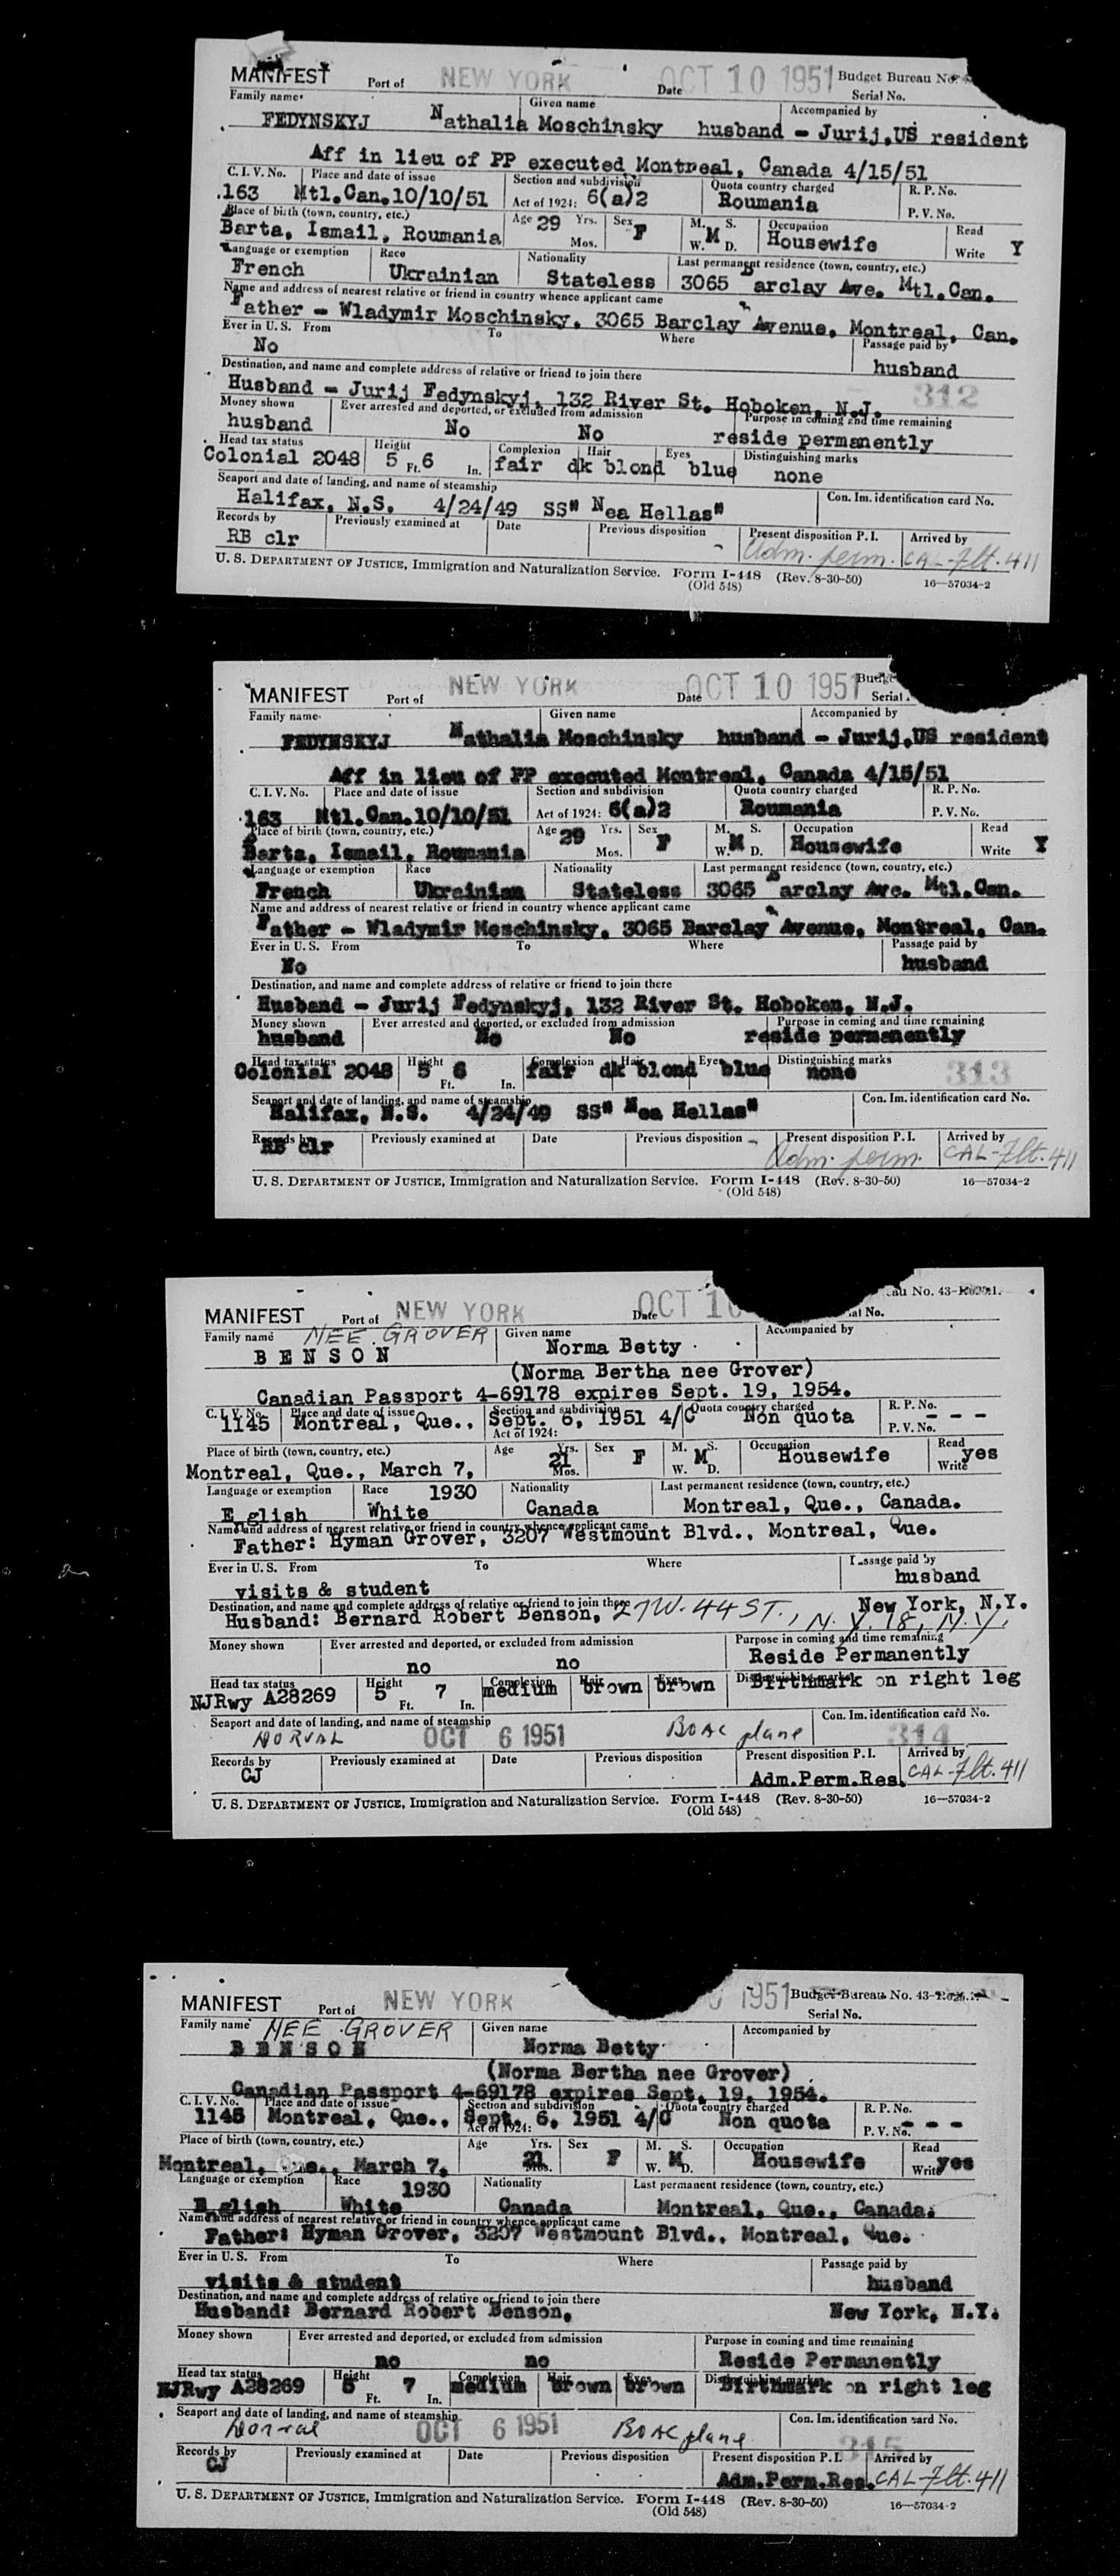 MANIFEST Port of NEW YORK Date OCT 10 1951 Budget Bureau No.
Serial No.
Family name Given name Accompanied by
FEDYNSKYJ Nathalia Moschinsky husband - Jurij,US resident
Aff in lieu of PP executed Montreal, Canada 4/15/51
C. I. V. No. Place and date of issue Section and subdivision Quota country charged R. P. No.
163 Mtl.Can.10/10/51 Act of 1924: 6(a)2 Roumania P. V. No.
Place of birth (town, country, etc.) Age 29 Yrs. Sex M. S. Occupation Read
Barta, Ismail, Roumania Mos. F W. M D. Housewife Write Y
Language or exemption Race Nationality Last permanent residence (town, country, etc.)
French Ukrainian Stateless 3065 Barclay Ave. Mtl.Can.
Name and address of nearest relative or friend in country whence applicant came
Father - Wladymir Moschinsky, 3065 Barclay Avenue, Montreal, Can.
Ever in U. S. From To Where Passage paid by
No husband
Destination, and name and complete address of relative or friend to join there
Husband - Jurij Fedynskyj, 132 River St. Hoboken, N.J. 312
Money shown Ever arrested and deported, or excluded from admission Purpose in coming and time remaining
husband No No reside permanently
Head tax status Height Complexion Hair Eyes Distinguishing marks
Colonial 2048 5 Ft. 6 In. fair dk blond blue none
Seaport and date of landing, and name of steamship Con. Im. identification card No.
Halifax, N.S. 4/24/49 SS" Nea Hellas"
Records by Previously examined at Date Previous disposition Present disposition P. I. Arrived by
RB clr Adm. perm. CAL-Flt. 411
U. S. DEPARTMENT OF JUSTICE, Immigration and Naturalization Service. Form I-448 (Rev. 8-30-50) 16—57034-2
(Old 548)
MANIFEST Port of NEW YORK Date OCT 10 1951
Serial
Family name Given name Accompanied by
FEDYNSKYJ Nathalia Moschinsky husband - Jurij,US resident
Aff in lieu of PP executed Montreal, Canada 4/15/51
C. I. V. No. Place and date of issue Section and subdivision Quota country charged R. P. No.
163 Mtl.Can.10/10/51 Act of 1924: 6(a)2 Roumania P. V. No.
Place of birth (town, country, etc.) Age 29 Yrs. Sex M. S. Occupation Read
Barta, Ismail, Roumania Mos. F W. M D. Housewife Write Y
Language or exemption Race Nationality Last permanent residence (town, country, etc.)
French Ukrainian Stateless 3065 Barclay Ave. Mtl.Can.
Name and address of nearest relative or friend in country whence applicant came
Father - Wladymir Moschinsky, 3065 Barclay Avenue, Montreal, Can.
Ever in U. S. From To Where Passage paid by
No husband
Destination, and name and complete address of relative or friend to join there
Husband - Jurij Fedynskyj, 132 River St. Hoboken, N.J.
Money shown Ever arrested and deported, or excluded from admission Purpose in coming and time remaining
husband No No reside permanently
Head tax status Height Complexion Hair Eyes Distinguishing marks
Colonial 2048 5 Ft. 6 In. fair dk blond blue none 313
Seaport and date of landing, and name of steamship Con. Im. identification card No.
Halifax, N.S. 4/24/49 SS" Nea Hellas"
Records by Previously examined at Date Previous disposition Present disposition P. I. Arrived by
RB clr Adm. perm. CAL-Flt. 411
U. S. DEPARTMENT OF JUSTICE, Immigration and Naturalization Service. Form I-448 (Rev. 8-30-50) 16—57034-2
(Old 548)
MANIFEST Port of NEW YORK Date OCT 10 No. 43-
No.
Family name NEE GROVER Given name Accompanied by
BENSON Norma Betty
(Norma Bertha nee Grover)
Canadian Passport 4-69178 expires Sept. 19, 1954.
C. I. V. No. Place and date of issue Section and subdivision Quota country charged R. P. No.
1145 Montreal, Que., Sept. 6, 1951 4/C Non quota - - -
Act of 1924: P. V. No.
Place of birth (town, country, etc.) Age Yrs. Sex M. S. Occupation Read
Montreal, Que., March 7, 21 Mos. F W. M D. Housewife Write yes
Language or exemption Race 1930 Nationality Last permanent residence (town, country, etc.)
E glish White Canada Montreal, Que., Canada.
Name and address of nearest relative or friend in country whence applicant came
Father: Hyman Grover, 3207 Westmount Blvd., Montreal, Que.
Ever in U. S. From To Where Passage paid by
visits & student husband
Destination, and name and complete address of relative or friend to join there New York, N.Y.
Husband: Bernard Robert Benson, 27 W. 44 ST., N. Y. 18, N. Y.
Money shown Ever arrested and deported, or excluded from admission Purpose in coming and time remaining
no no Reside Permanently
Head tax status Height Complexion Hair Eyes Distinguishing marks
NJRwy A28269 5 Ft. 7 In. medium brown brown Birthmark on right leg
Seaport and date of landing, and name of steamship Con. Im. identification card No.
DORVAL OCT 6 1951 BOAC plane 314
Records by Previously examined at Date Previous disposition Present disposition P. I. Arrived by
CJ Adm.Perm.Res. CAL-Flt. 411
U. S. DEPARTMENT OF JUSTICE, Immigration and Naturalization Service. Form I-448 (Rev. 8-30-50) 16—57034-2
(Old 548)
MANIFEST Port of NEW YORK 1951 Budget Bureau No. 43-
Serial No.
Family name NEE GROVER Given name Accompanied by
BENSON Norma Betty
(Norma Bertha nee Grover)
Canadian Passport 4-69178 expires Sept. 19, 1954.
C. I. V. No. Place and date of issue Section and subdivision Quota country charged R. P. No.
1145 Montreal, Que., Sept. 6, 1951 4/C Non quota - - -
Act of 1924: P. V. No.
Place of birth (town, country, etc.) Age Yrs. Sex M. S. Occupation Read
Montreal, Que., March 7, 21 Mos. F W. M D. Housewife Write yes
Language or exemption Race 1930 Nationality Last permanent residence (town, country, etc.)
E glish White Canada Montreal, Que., Canada.
Name and address of nearest relative or friend in country whence applicant came
Father: Hyman Grover, 3207 Westmount Blvd., Montreal, Que.
Ever in U. S. From To Where Passage paid by
visits & student husband
Destination, and name and complete address of relative or friend to join there
Husband: Bernard Robert Benson, New York, N.Y.
Money shown Ever arrested and deported, or excluded from admission Purpose in coming and time remaining
no no Reside Permanently
Head tax status Height Complexion Hair Eyes Distinguishing marks
NJRwy A28269 5 Ft. 7 In. medium brown brown Birthmark on right leg
Seaport and date of landing, and name of steamship Con. Im. identification card No.
Dorval OCT 6 1951 BOAC plane 315
Records by Previously examined at Date Previous disposition Present disposition P. I. Arrived by
CJ Adm.Perm.Res. CAL-Flt. 411
U. S. DEPARTMENT OF JUSTICE, Immigration and Naturalization Service. Form I-448 (Rev. 8-30-50) 16—57034-2
(Old 548)